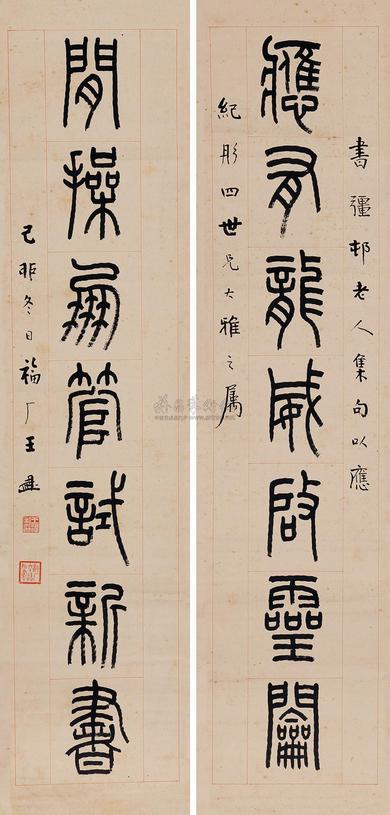 書彊邨老人集句以應
應有龍威啟靈𨷲
紀彤四世兄大雅之屬
閒操管試新書
己卯冬日福厂王禔